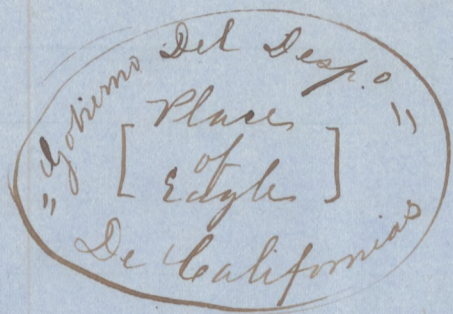 "Gobierno Del Desp.o"
[ Place
of
Eagle ]
De Californias